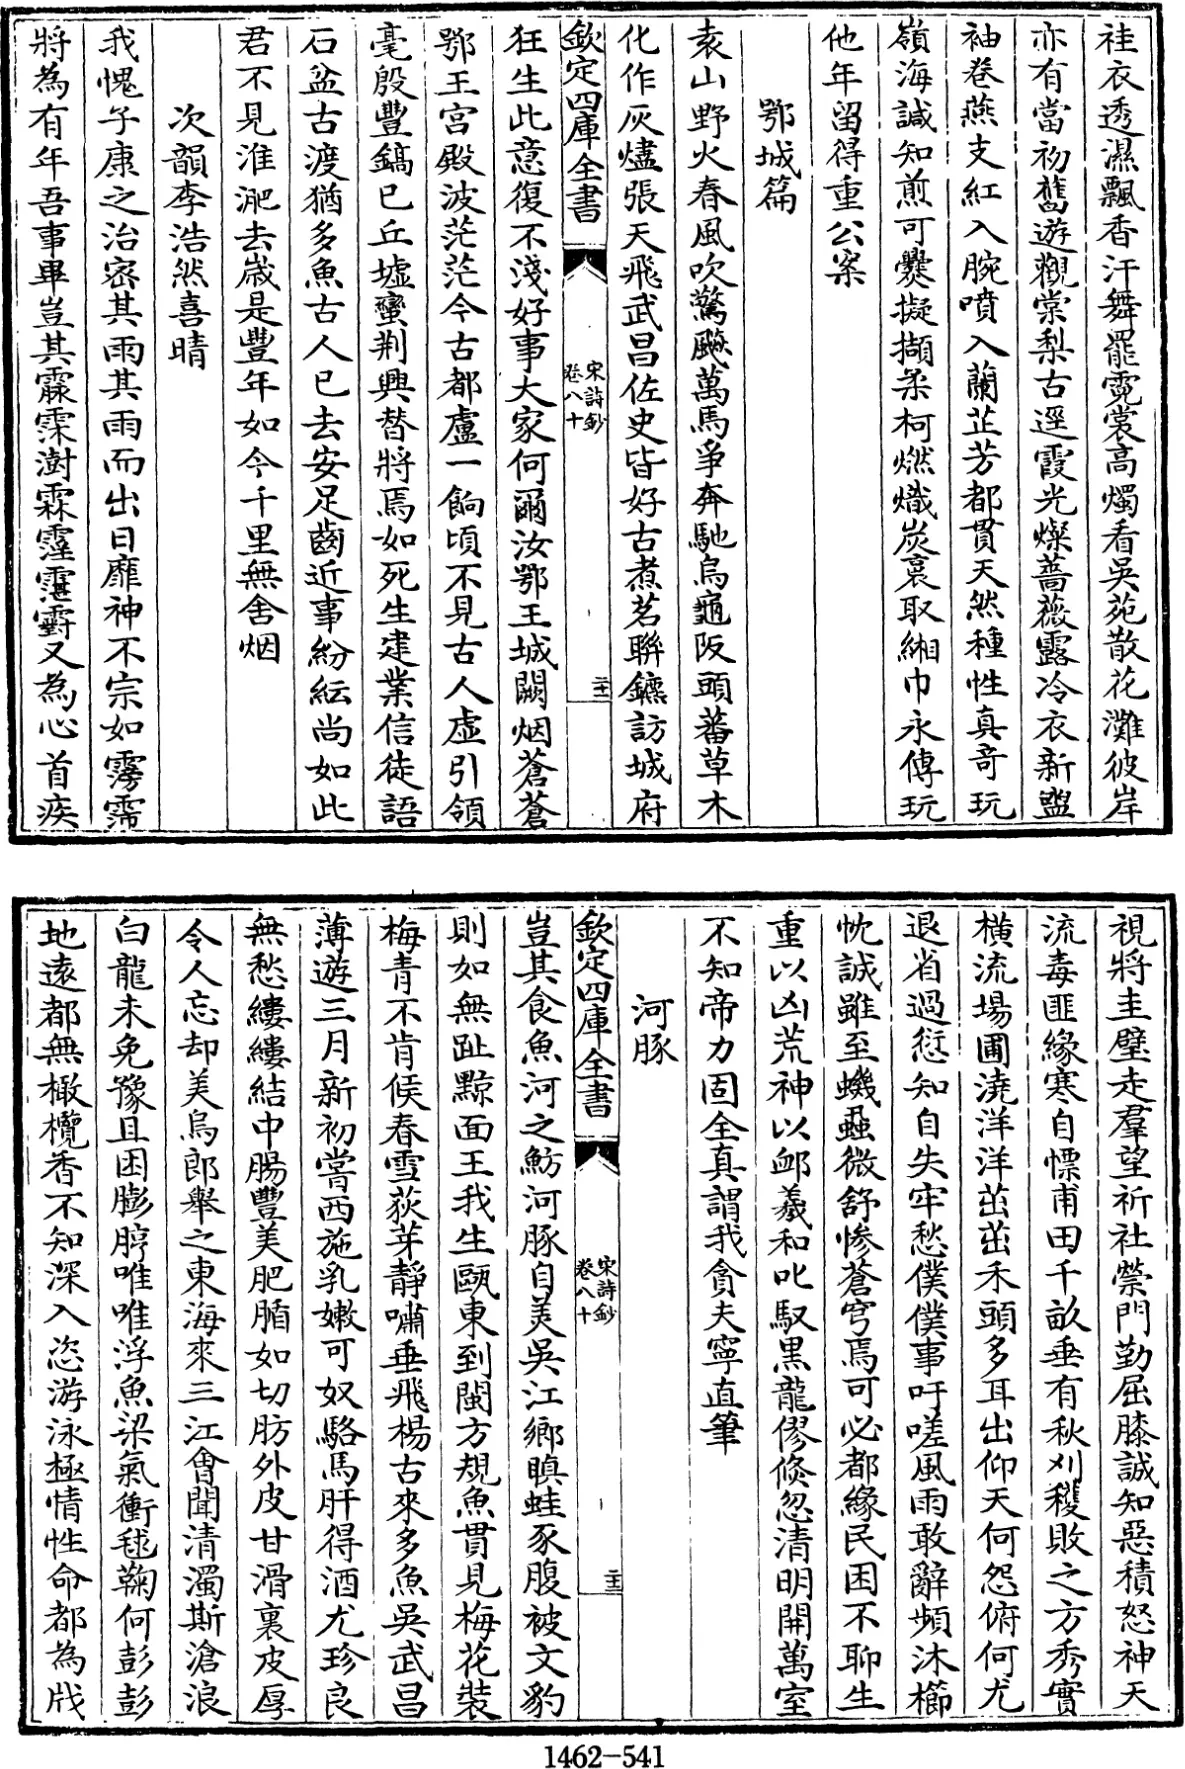 袿衣透濕飄香汗舞罷霓裳高燭看吳苑散花灘彼岸
亦有當初舊遊觀棠梨古逕霞光燦薔薇露冷衣新盥
袖卷燕支紅入腕噴入蘭芷芳都貫天然種性真奇玩
嶺海諴知煎可爨擬擷柔柯燃熾炭裹取緗巾永傳玩
他年留得重公案
鄂城篇
袁山野火春風吹驚飈萬馬爭奔馳烏龜阪頭蕃草木
化作灰燼張天飛武昌佐史皆好古煮茗聯鑣訪城府
欽定四庫全書
宋詩鈔
卷八十
二十一
狂生此意復不淺好事大家何爾汝鄂王城闕烟蒼蒼
鄂王宮殿波茫茫今古都盧一餉頃不見古人虛引領
毫殷豐鎬已丘墟蠻荆興替將焉如死生建業信徒語
石盆古渡猶多魚古人已去安足齒近事紛紜尚如此
君不見淮淝去歲是豐年如今千里無舍烟
次韻李浩然喜晴
我愧子康之治密其雨其雨而出日靡神不宗如霶霈
將為有年吾事畢豈其霡霂澍霖霪霮䨴又為心首疾
視將圭璧走羣望祈社禜門勤屈膝誠知惡積怒神天
流毒匪緣寒自慄甫田千畝垂有秋刈穫敗之方秀實
橫流場圃澆洋洋茁茁禾頭多耳出仰天何怨俯何尤
退省過愆知自失牢愁僕僕事吁嗟風雨敢辭頻沐櫛
忱誠雖至蟣蝨微舒慘蒼穹焉可必都緣民困不聊生
重以凶荒神以卹羲和叱馭黑龍僇倐忽清明開萬室
不知帝力固全真謂我貪夫寧直筆
河豚
欽定四庫全書
宋詩鈔
卷八十
二十二
豈其食魚河之魴河豚自美吳江鄉瞋蛙豕腹被文豹
則如無趾黥面王我生甌東到閩方規魚貫見梅花裝
梅青不肯候春雪荻芽靜嘯垂飛楊古來多魚吳武昌
薄遊三月新初嘗西施乳嫩可奴駱馬肝得酒尤珍良
無愁縷縷結中腸豐美肥腯如切肪外皮甘滑裏皮厚
令人忘却美烏郎舉之東海來三江會聞清濁斯滄浪
白龍未免豫且困膨脝唯唯浮魚梁氣衝毬鞠何彭彭
地遠都無橄欖香不知深入恣游泳極情性命都為戕
1462-541